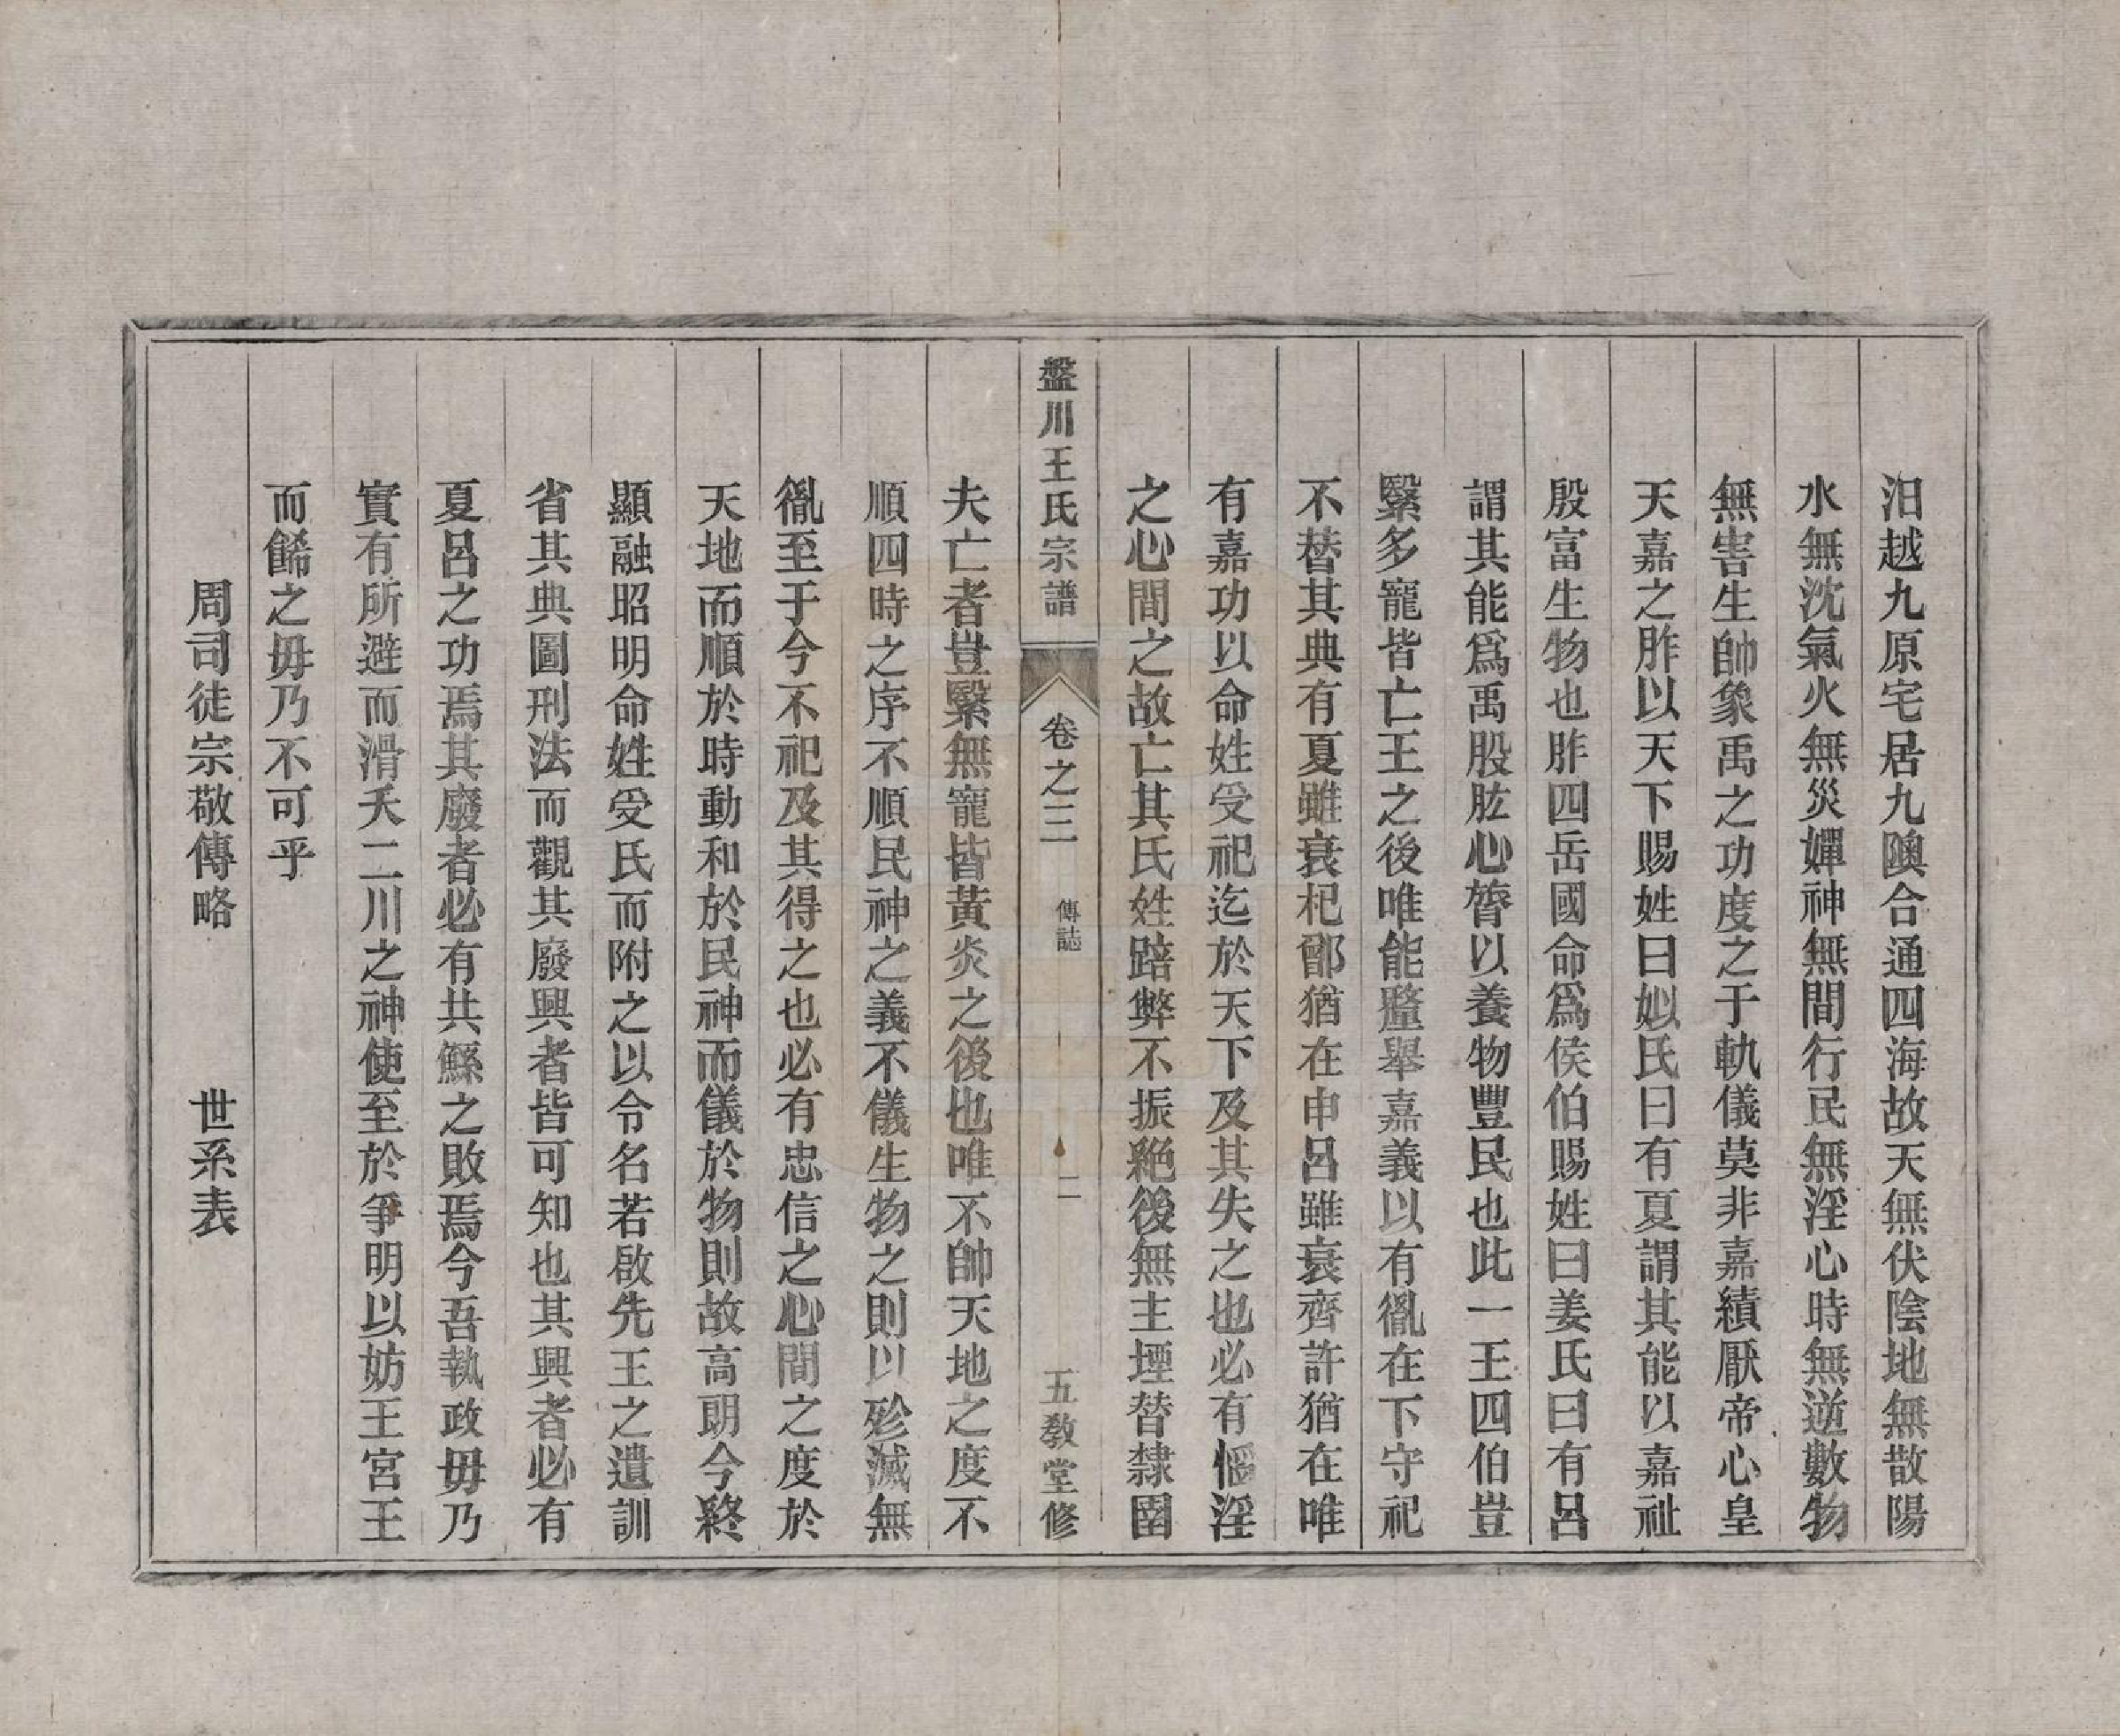 汨越九原宅居九隩合通四海故天無伏陰地無散陽
水無沈氣火無災燀神無間行民無淫心時無逆數物
無害生帥象禹之功度之于軌儀莫非嘉績厭帝心皇
天嘉之胙以天下賜姓曰姒氏曰有夏謂其能以嘉祉
殷富生物也胙四岳國命爲侯伯賜姓曰姜氏曰有呂
謂其能爲禹股肱心膂以養物豐民也此一王四伯豈
繄多寵皆亡王之後唯能釐舉嘉義以有胤在下守祀
不替其典有夏雖衰杞鄫猶在申呂雖衰齊許猶在唯
有嘉功以命姓受祀迄於天下及其失之也必有慆淫
之心間之故亡其氏姓踣弊不振絶後無主堙替隸圉
盤川王氏宗譜
卷之三
傳誌
二
五教堂修
夫亡者豈繄無寵皆黃炎之後也唯不帥天地之度不
順四時之序不順民神之義不儀生物之則以殄滅無
胤至于今不祀及其得之也必有忠信之心間之度於
天地而順於時動和於民神而儀於物則故高朗令終
顯融昭明命姓受氏而附之以令名若啟先王之遺訓
省其典圖刑法而觀其廢興者皆可知也其興者必有
夏呂之功焉其廢者必有共鯀之敗焉今吾執政毋乃
實有所避而滑夭二川之神使至於爭明以妨王宮王
而餙之毋乃不可乎
周司徒宗敬傳略 世系表